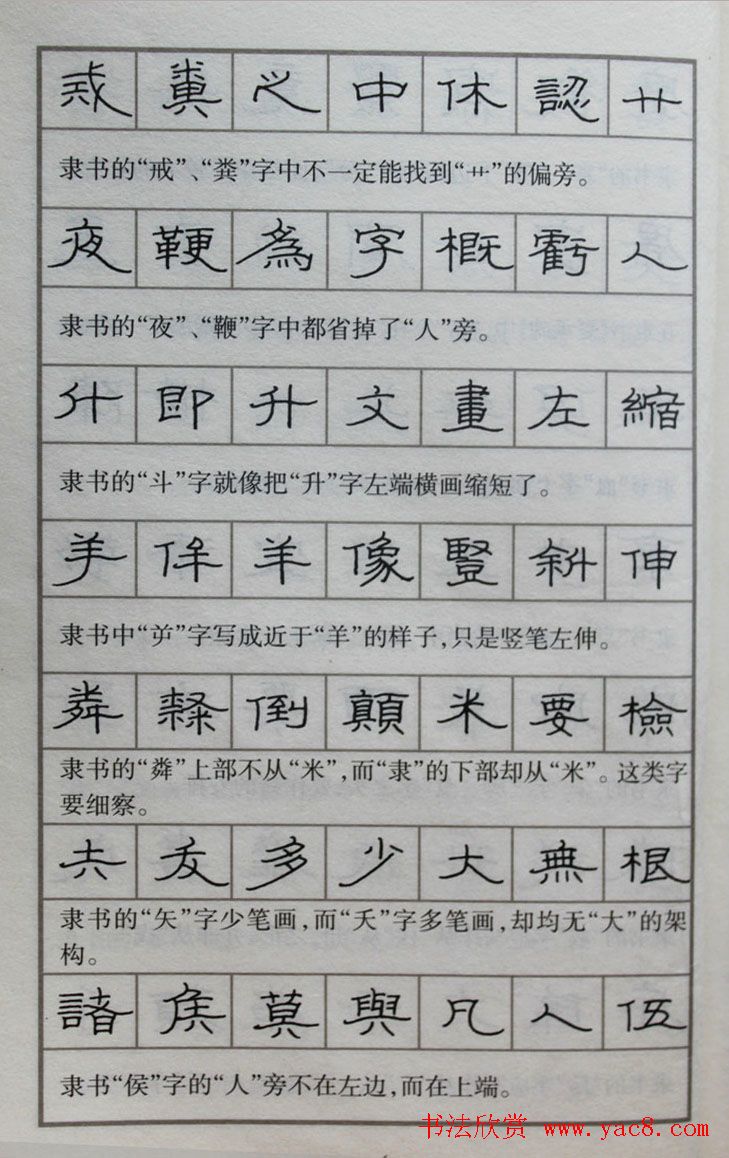 戒粪心中休認艹
隶书的“戒”、“粪”字中不一定能找到“艹”的偏旁。
夜鞭為字概虧人
隶书的“夜”、“鞭”字中都省掉了“人”旁。
斗即升文畫左縮
隶书的“斗”字就像把“升”字左端横画缩短了。
羊侔羊像豎斜伸
隶书中“丷干”字写成近于“羊”的样子,只是竖笔左伸。
粦隸倒顛米要檢
隶书的“粦”上部不从“米”,而“隶”的下部却从“米”。这类字
要细察。
夭多少大無根
隶书的“矢”字少笔画,而“夭”字多笔画,却均无“大”的架
构。
諸侯莫與凡人伍
隶书“侯”字的“人”旁不在左边,而在上端。
书法欣赏 www.yac8.com